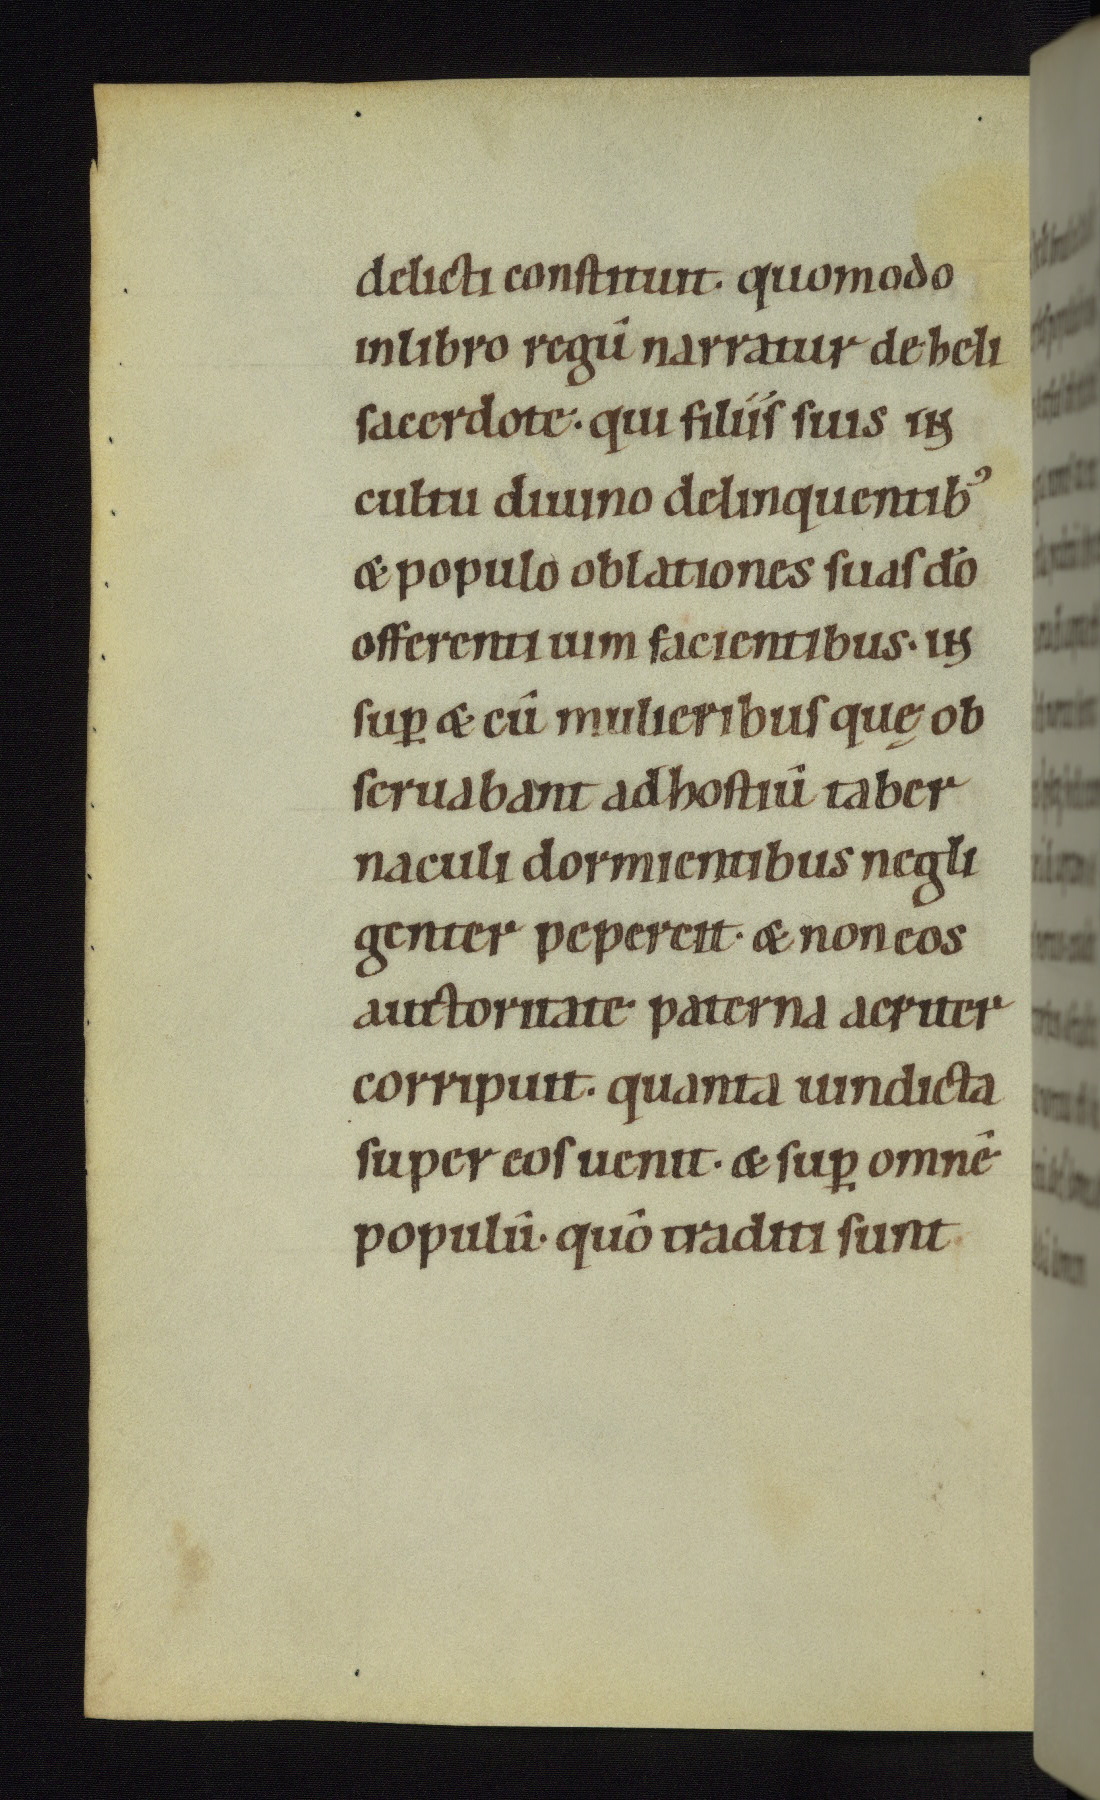 delicti constituit. quomodo
inlibro regū narratur de heli
sacerdote. qui filiis suis in
cultu diuino delinquentib᾿
& populo oblationes suas dō
offerenti uim facientibus. in
sup̱ & cū mulieribus quę ob
seruabant ad hostiū taber
naculi dormientibus negli
genter pepercit. & non eos
auctoritate paterna acriter
corripuit. quanta uindicta
super eos uenit. & sup̱ omnē
populū. quō traditi sunt